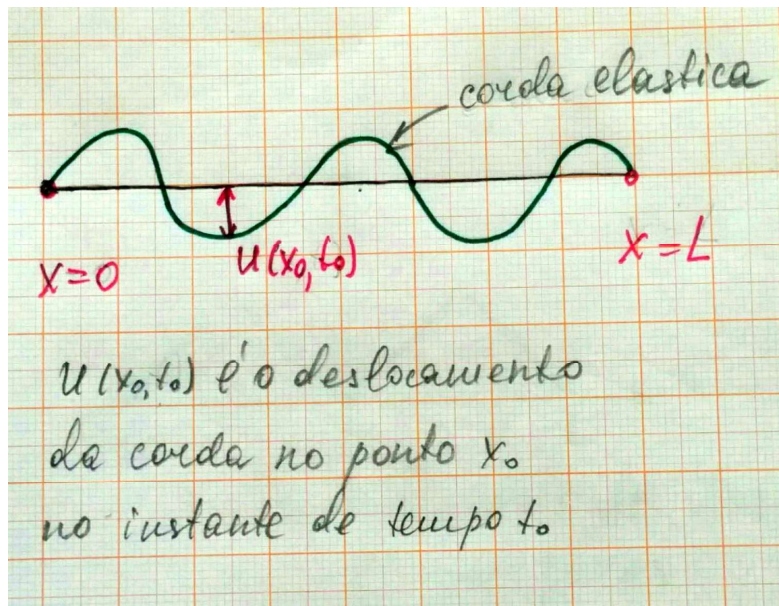 corda elastica
x=0
u(x₀,t₀)
x=L
u(x₀,t₀) é o deslocamento
da corda no ponto x₀
no instante de tempo t₀